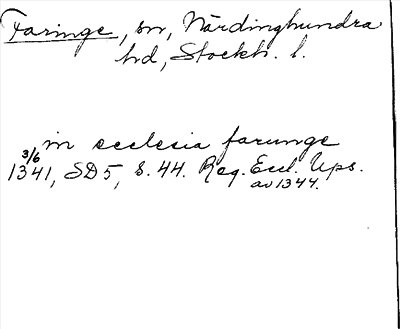 Faringe, sn, Närdinghundra
hd, Stockh. l.
in ecclesia farunge
3/6
1341, SD5, s. 44. Reg. Eccl. Ups.
av 1344.